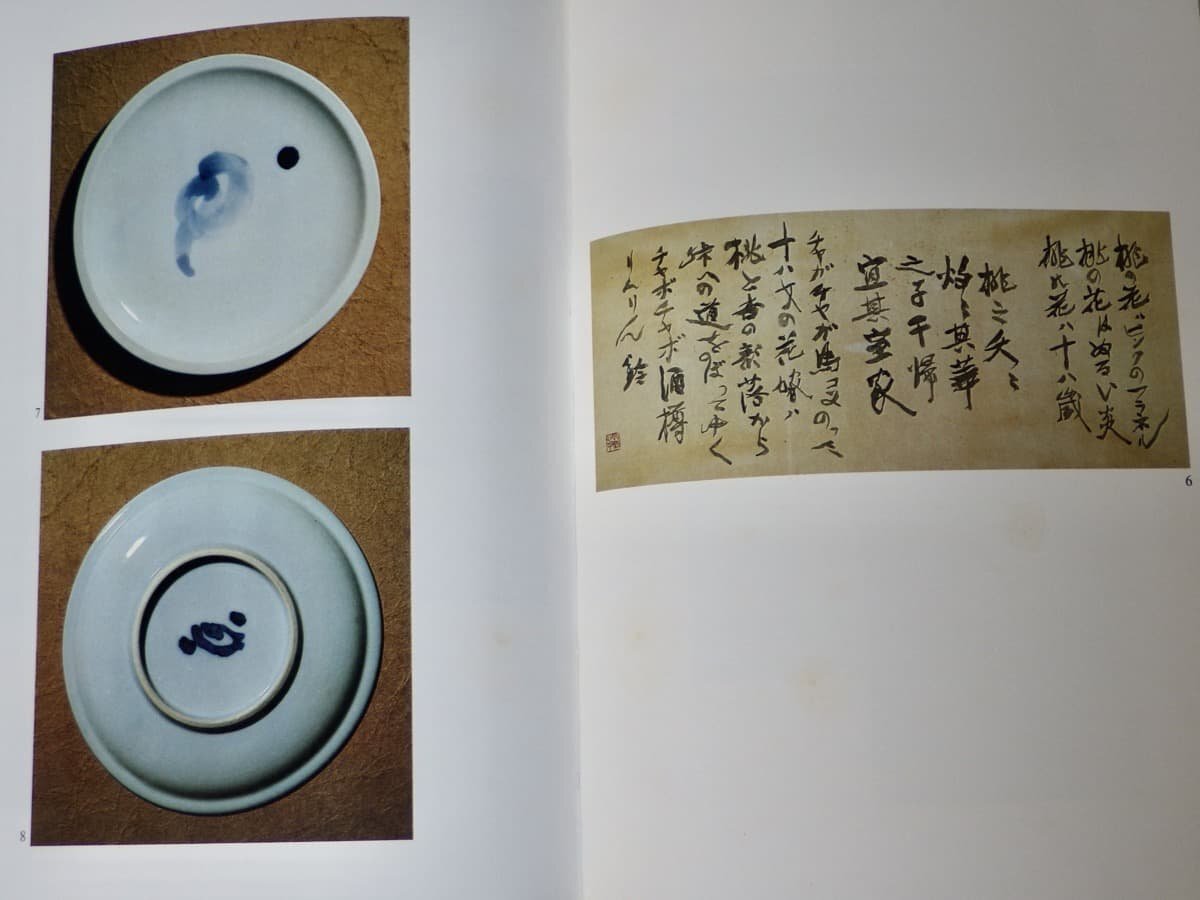 桃の花ハピンクのフラネル
桃の花はぬるい炎
桃の花ハ十八歳
桃之夭ミ
灼ミ其華
之子于歸
宜其室家
チャガチャガ馬コにのった
十八才の花嫁ハ
桃と杏の部落から
峠への道をぼってゆく
チャボチャボ酒樽
りんりん 鈴
6
7
8